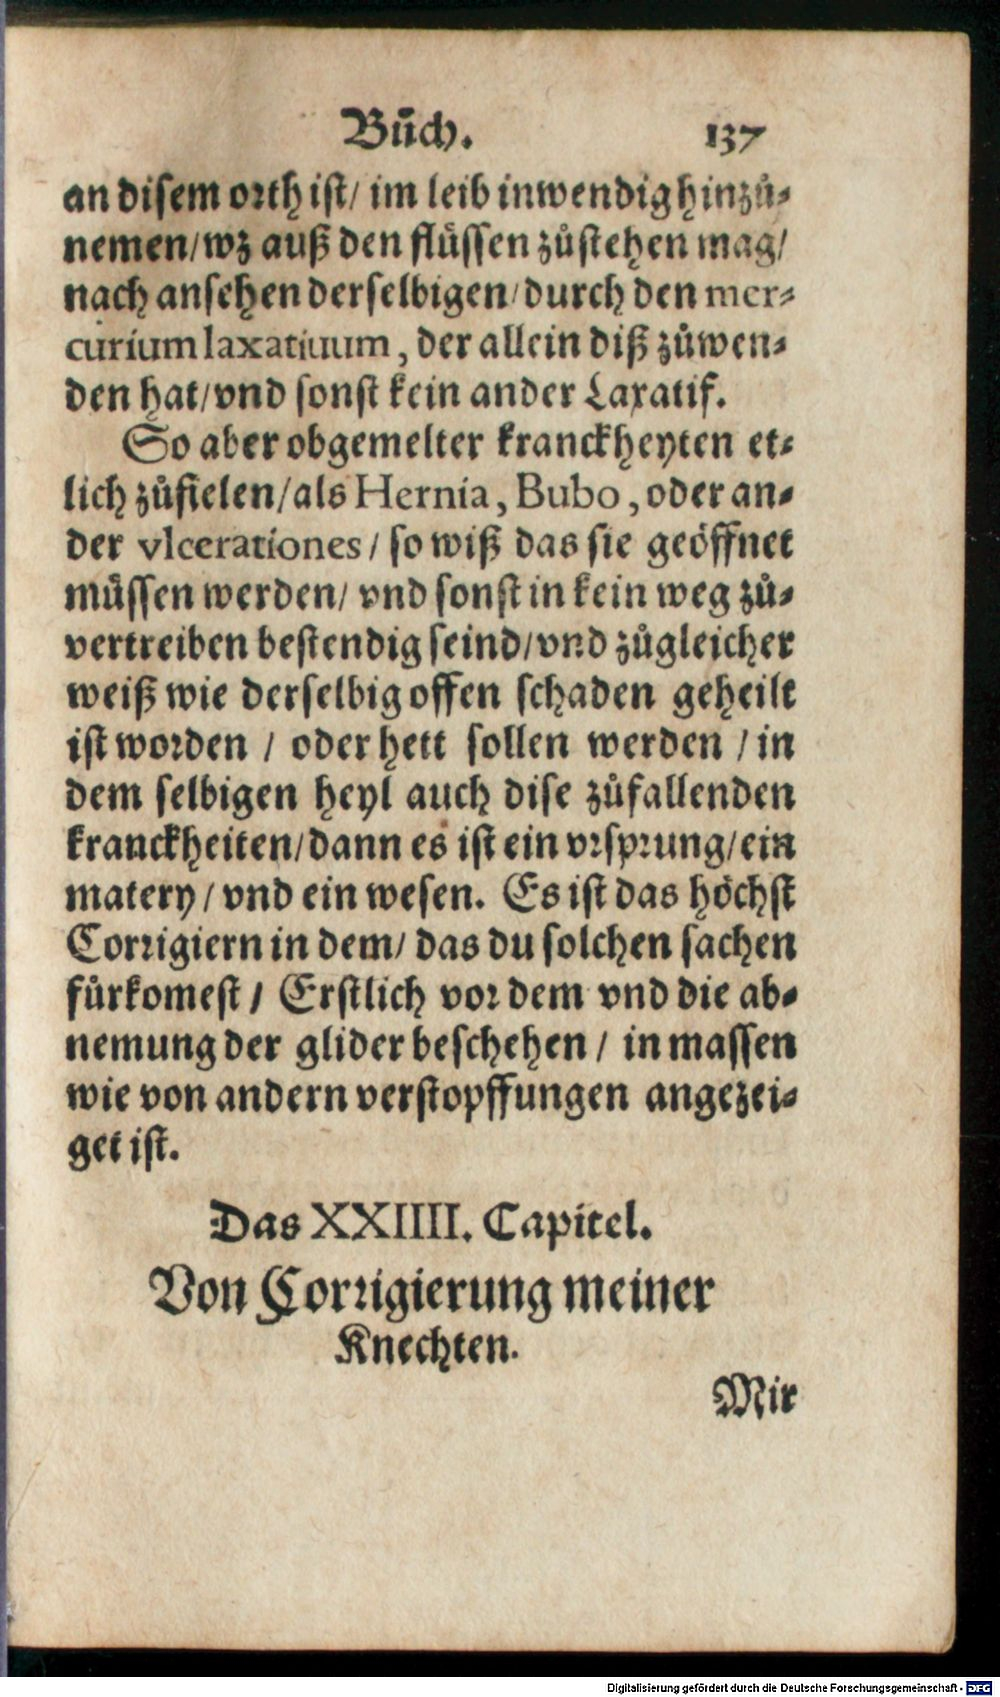 Bůch. 137
an disem orth ist/ im leib inwendig hinzů-
nemen/ wz auß den flüssen zůstehen mag/
nach ansehen derselbigen/ durch den mer-
curium laxatiuum, der allein diß zůwen-
den hat/ vnd sonst kein ander Laxatif.
So aber obgemelter kranckheyten et-
lich zůfielen/ als Hernia, Bubo, oder an-
der vlcerationes/ so wiß das sie geöffnet
müssen werden/ vnd sonst in kein weg zů-
vertreiben bestendig seind/ vnd zůgleicher
weiß wie derselbig offen schaden geheilt
ist worden / oder hett sollen werden / in
dem selbigen heyl auch dise zůfallenden
kranckheiten/ dann es ist ein vrsprung/ ein
matery/ vnd ein wesen. Es ist das höchst
Corrigiern in dem/ das du solchen sachen
fürkomest/ Erstlich vor dem vnd die ab-
nemung der glider beschehen/ in massen
wie von andern verstopffungen angezei-
get ist.
Das XXIIII. Capitel.
Von Corrigierung meiner
Knechten.
Mir
Digitalisierung gefördert durch die Deutsche Forschungsgemeinschaft - DFG